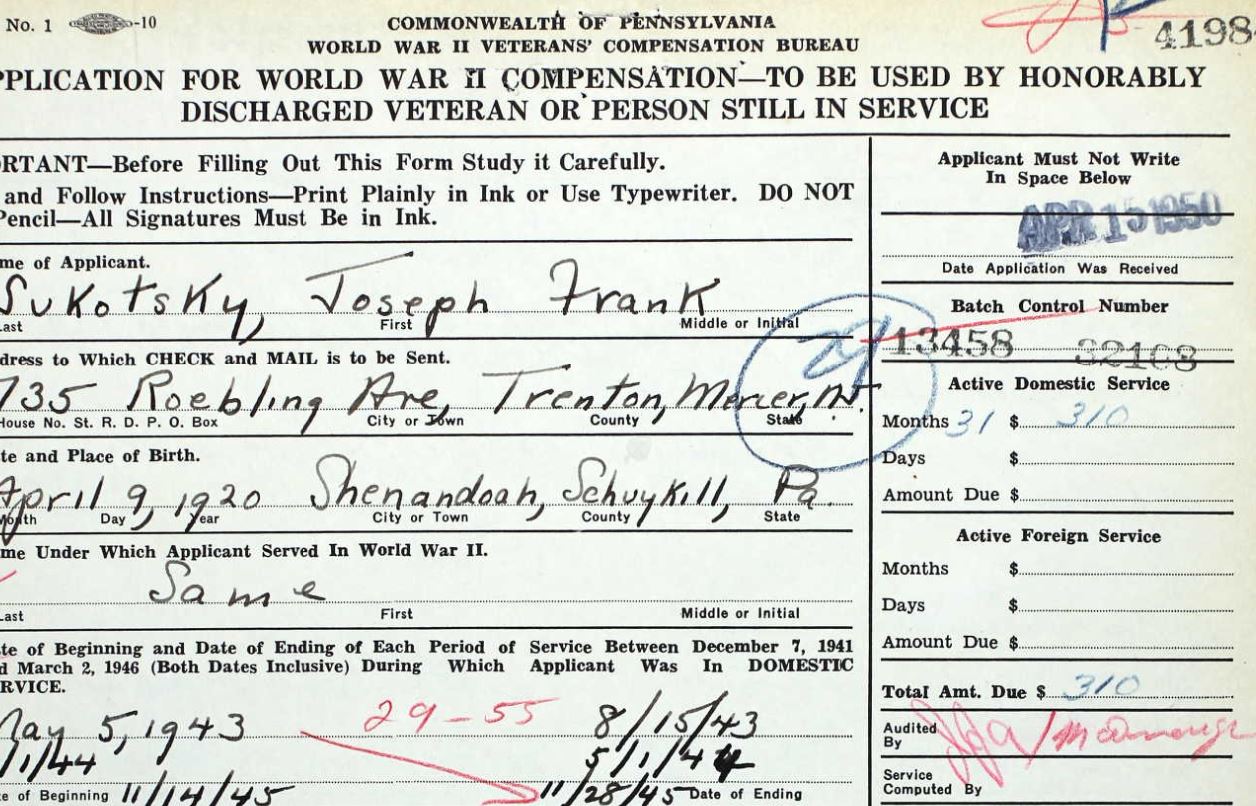 No. 1 -10
COMMONWEALTH OF PENNSYLVANIA
WORLD WAR II VETERANS' COMPENSATION BUREAU
4198
PPLICATION FOR WORLD WAR II COMPENSATION—TO BE USED BY HONORABLY
DISCHARGED VETERAN OR PERSON STILL IN SERVICE
RTANT—Before Filling Out This Form Study it Carefully.
and Follow Instructions—Print Plainly in Ink or Use Typewriter. DO NOT
Pencil—All Signatures Must Be in Ink.
me of Applicant.
Sukotsky, Joseph Frank
Last First Middle or Initial
dress to Which CHECK and MAIL is to be Sent.
735 Roebling Ave, Trenton, Mercer, N.J.
House No. St. R. D. P. O. Box City or Town County State
te and Place of Birth.
April 9, 1920 Shenandoah, Schuykill, Pa.
Month Day Year City or Town County State
me Under Which Applicant Served In World War II.
Same
Last First Middle or Initial
te of Beginning and Date of Ending of Each Period of Service Between December 7, 1941
d March 2, 1946 (Both Dates Inclusive) During Which Applicant Was In DOMESTIC
RVICE.
May 5, 1943 29-55 8/15/43
/1/44 5/1/44
te of Beginning 11/14/45 11/28/45 Date of Ending
Applicant Must Not Write
In Space Below
APR 15 1950
Date Application Was Received
Batch Control Number
29
13458 32108
Active Domestic Service
Months 31 $ 310
Days $
Amount Due $
Active Foreign Service
Months $
Days $
Amount Due $
Total Amt. Due $ 310
Audited
By
Service
Computed By